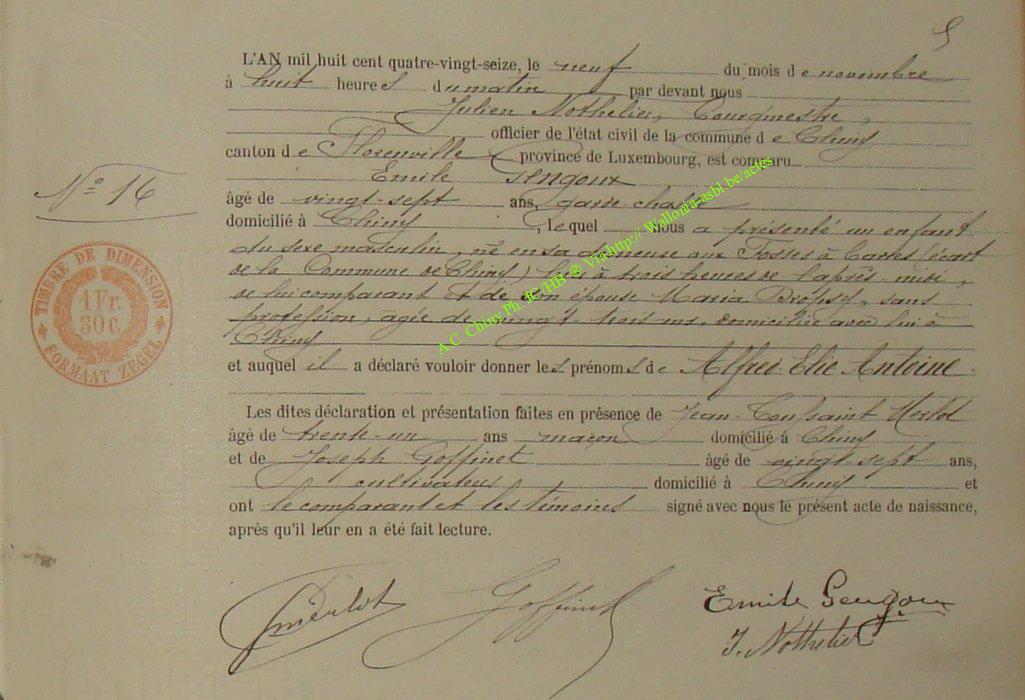 5
L'AN mil huit cent quatre-vingt-seize, le neuf du mois de novembre
à huit heures du matin par devant nous
Julien Nothelier, Bourgmestre,
officier de l'état civil de la commune de Chiny
canton de Florenville province de Luxembourg, est comparu
Emile Gengoux
âgé de vingt-sept ans, garde-chasse
domicilié à Chiny, lequel nous a présenté un enfant
du sexe masculin, né en sa demeure aux Fosses à Cartes (écart
de la Commune de Chiny) hier à trois heures de l'après-midi,
de lui comparant et de son épouse Maria Dropsy, sans
profession, agée de vingt-trois ans, domiciliée avec lui à
Chiny
et auquel il a déclaré vouloir donner les prénoms de Alfred Elie Antoine.
Les dites déclaration et présentation faites en présence de Jean-Toussaint Merlot
âgé de trente-un ans maçon domicilié à Chiny
et de Joseph Goffinet âgé de vingt-sept ans,
cultivateur domicilié à Chiny et
ont le comparant et les témoins signé avec nous le présent acte de naissance,
après qu'il leur en a été fait lecture.
N° 16
TIMBRE DE DIMENSION
1 Fr.
30 c.
FORMAAT ZEGEL
A.C. Chiny Ph. JC/HB ® Via http:// Wallonia-asbl.be/actes
Merlot
Goffinet
Emile Gengoux
J. Nothelier